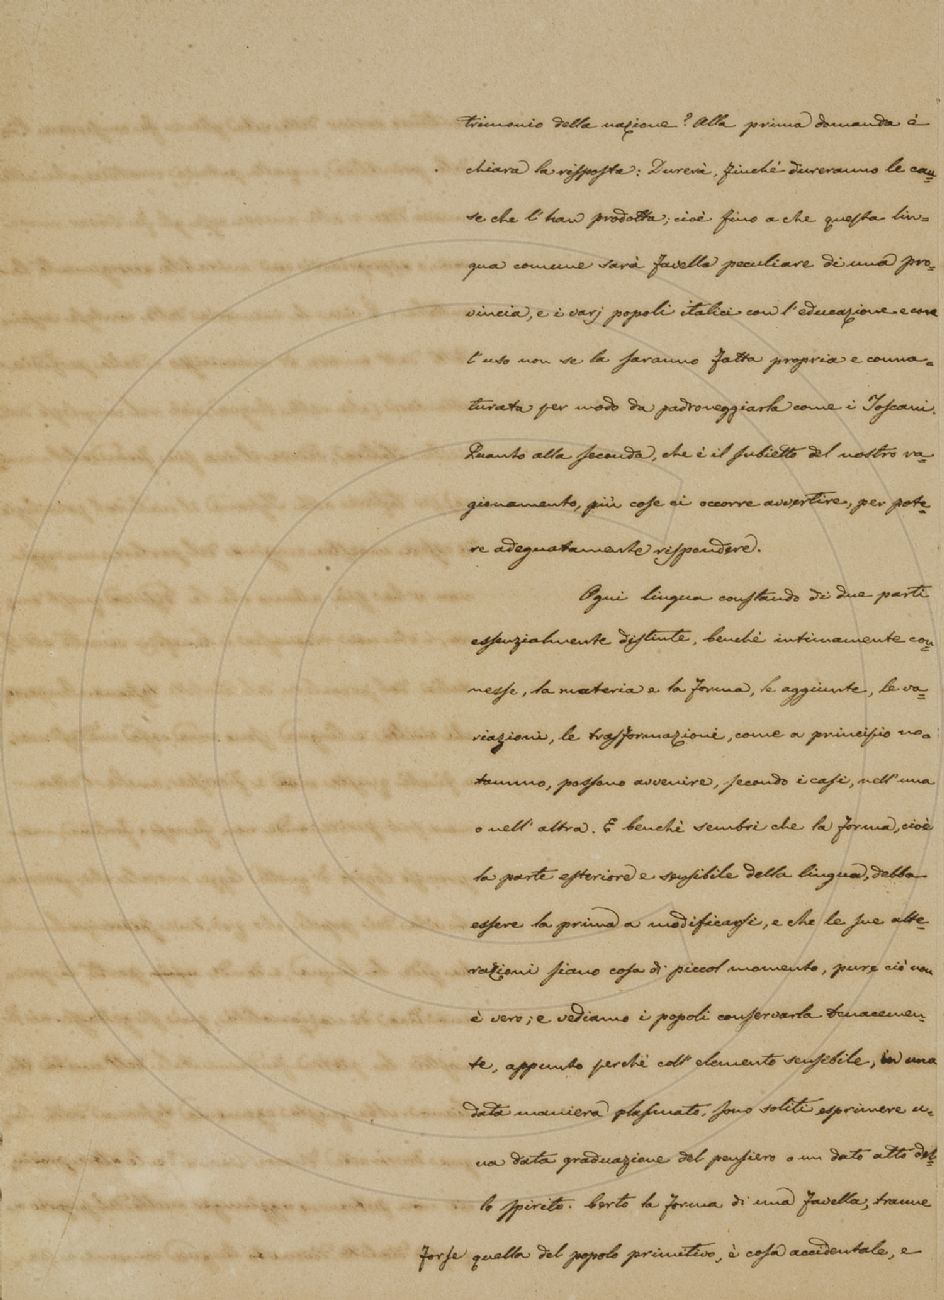 trimonio della nazione? Alla prima domanda è
chiara la risposta: Durerà, finché dureranno le cau=
se che l'han prodotta; cioè fino a che questa lin=
gua comune sarà favella peculiare di una pro=
vincia, e i varj popoli italici con l'educazione e con
l'uso non se la saranno fatta propria e conna=
turata per modo da padroneggiarla come i Toscani.
Quanto alla seconda, che è il subietto del nostro ra=
gionamento, più cose ci occorre avvertire, per pote=
re adeguatamente rispondere.
Ogni lingua constando di due parti
essenzialmente distinte, benchè intimamente con=
nesse, la materia e la forma, le aggiunte, le va=
riazioni, le trasformazioni, come a principio no=
tammo, possono avvenire, secondo i casi, nell'una
o nell'altra. E benchè sembri che la forma, cioè
la parte esteriore e sensibile della lingua, debba
essere la prima a modificarsi, e che le sue alte=
razioni siano cosa di piccol momento, pure ciò non
è vero; e vediamo i popoli conservarla tenacemen=
te, appunto perchè coll'elemento sensibile, in una
data maniera plasmato, sono soliti esprimere u=
na data graduazione del pensiero o un dato atto del=
lo spirito. Certo la forma di una favella, tranne
forse quella del popolo primitivo, è cosa accidentale, e